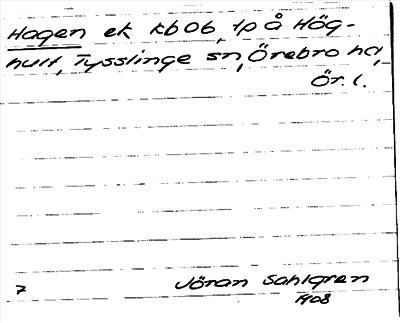 Hagen ek kb Ob, tp på Hög-
hult, Tysslinge sn, Örebro hd,
Ör. l.
7 Jöran Sahlgren
1908